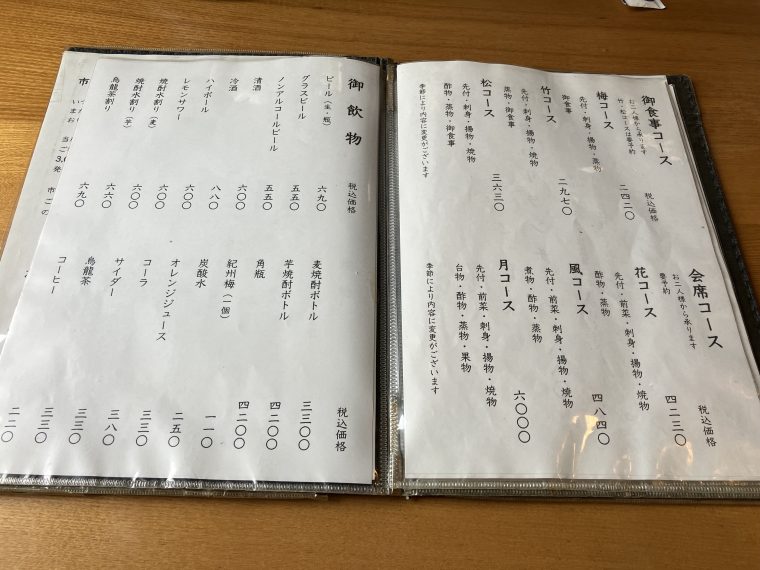 御食事コース
お二人様から承ります
竹・松コースは要予約
税込価格
梅コース
二四二〇
先付・刺身・揚物・蒸物
御食事
竹コース
二九七〇
先付・刺身・揚物・焼物
蒸物・御食事
松コース
三六三〇
先付・刺身・揚物・焼物
酢物・蒸物・御食事
季節により内容に変更がございます
会席コース
お二人様から承ります
要予約
税込価格
花コース
四二三〇
先付・前菜・刺身・揚物・焼物
酢物・蒸物
風コース
四八四〇
先付・前菜・刺身・揚物・焼物
煮物・酢物・蒸物
月コース
六〇〇〇
先付・前菜・刺身・揚物・焼物
台物・酢物・蒸物・果物
季節により内容に変更がございます
御飲物
税込価格
ビール(生・瓶)
六九〇
グラスビール
五五〇
ノンアルコールビール
五五〇
清酒
六〇〇
冷酒
八八〇
ハイボール
六〇〇
レモンサワー
六〇〇
焼酎水割り(麦)
六〇〇
焼酎水割り(芋)
六六〇
烏龍茶割り
六九〇
税込価格
麦焼酎ボトル
三三〇〇
芋焼酎ボトル
四二〇〇
角瓶
四二〇〇
紀州梅(一個)
一一〇
炭酸水
二五〇
オレンジジュース
三三〇
コーラ
三八〇
サイダー
三三〇
烏龍茶
三三〇
コーヒー
二二〇
市